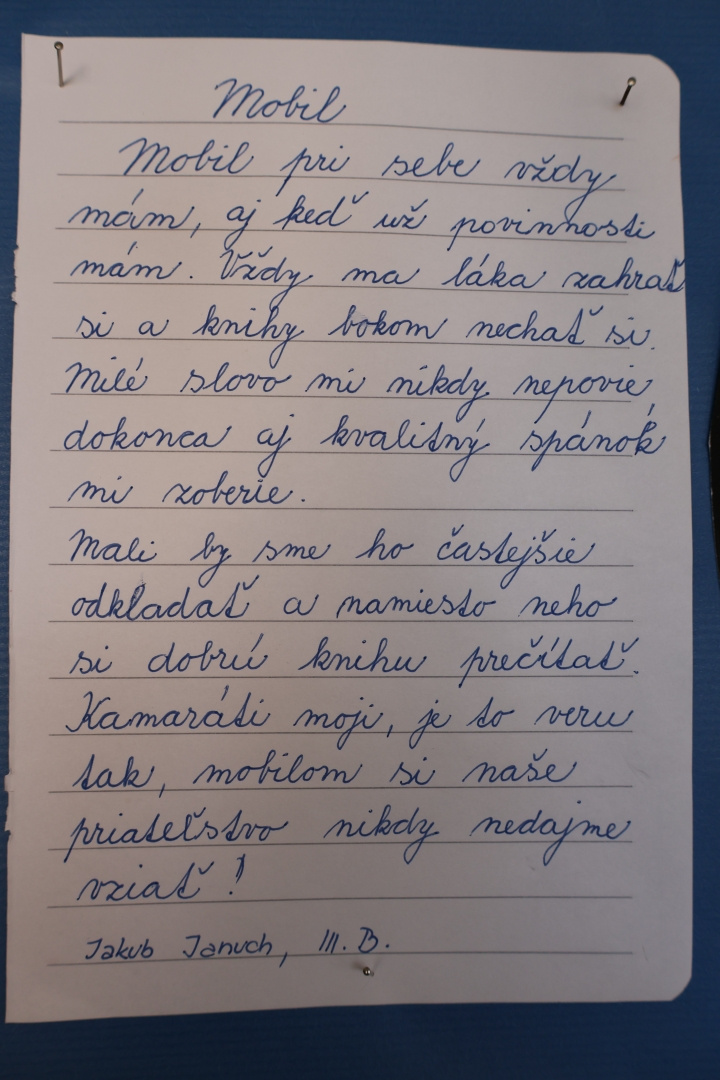 Mobil
Mobil pri sebe vždy
mám, aj keď už povinnosti
mám. Vždy ma láka zahrať
si a knihy bokom nechať si.
Milé slovo mi nikdy nepovie,
dokonca aj kvalitný spánok
mi zoberie.
Mali by sme ho častejšie
odkladať a namiesto neho
si dobrú knihu prečítať.
Kamaráti moji, je to veru
tak, mobilom si naše
priateľstvo nikdy nedajme
vziať!
Jakub Januch, III. B.